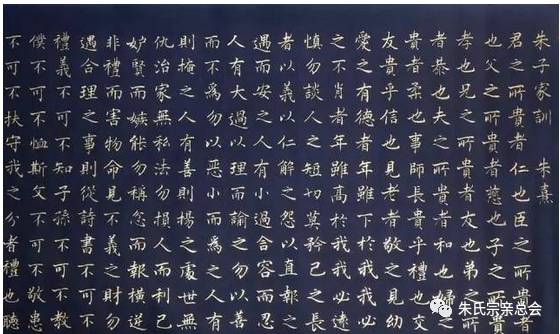 朱子家訓 朱熹
君之所貴者仁也臣之所貴
也父之所貴者慈也子之所
者恭也夫之所貴者和也婦之
貴者柔也事師長貴乎禮也交
友貴乎信也見老者敬之見幼
愛之有德者年雖下於我我必
之不肖者年雖高於我我必遠
慎勿談人之短切莫矜己之長
者以義以仁解之怨以直報之
遇而安之人有小過含容而忍
人有大過以理而諭之勿以善
而不為勿以惡小而為之人有
則掩之人有善則揚之處世無
仇治家無私法勿損人而利己
妒賢而嫉能勿稱忿而報橫逆
非禮而害物命見不義之財勿
遇合理之事則從詩書不可不
禮義不可不知子孫不可不教
僕不可不恤斯文不可不敬患
不可不扶守我之分者禮也聽
朱氏宗亲总会